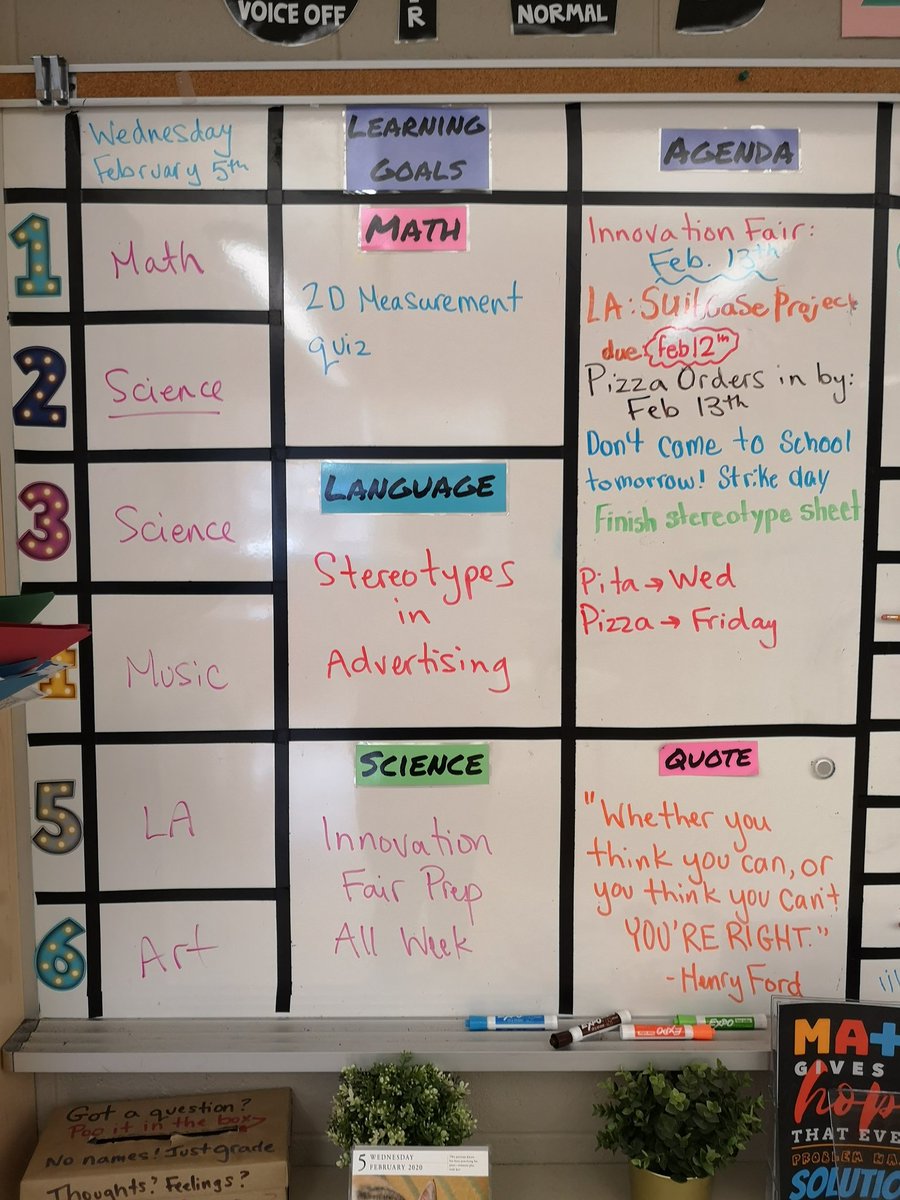 VOICE OFF
R
NORMAL
Wednesday
February 5th
LEARNING
GOALS
AGENDA
1
Math
2
Science
3
Science
4
Music
5
LA
6
Art
MATH
2D Measurement
quiz
LANGUAGE
Stereotypes
in
Advertising
SCIENCE
Innovation
Fair Prep
All Week
Innovation Fair:
Feb. 13th
LA: Suitcase Project
due: feb12th
Pizza Orders in by:
Feb 13th
Don't come to School
tomorrow! Strike day
Finish stereotype sheet
Pita → Wed
Pizza → Friday
QUOTE
"Whether you
think you can, or
you think you can't
YOU'RE RIGHT."
-Henry Ford
EXPO
Got a question?
Pop it in the box
No names! Just grade
Thoughts? Feelings?
5 WEDNESDAY
FEBRUARY 2020
MA+
GIVES
hop
THAT EVE
PROBLEM HA
SOLUTI